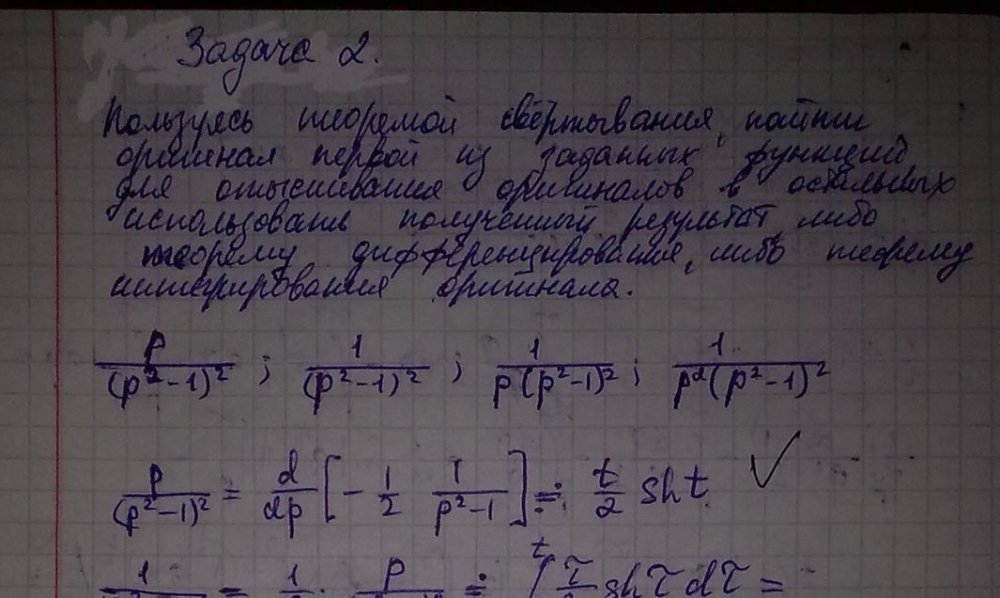 Задача 2.
Пользуясь теоремой свёртывания, найти
оригинал первой из заданных функций
для отыскивания оригиналов в остальных
использовать полученный результат, либо
теорему дифференцирования, либо теорему
интегрирования оригинала.
p/(p²-1)² ; 1/(p²-1)² ; 1/p(p²-1)² ; 1/p²(p²-1)²
p/(p²-1)² = d/dp [ - 1/2 1/(p²-1) ] ≓ t/2 sh t
1 = 1 · p ≓ ∫ t τ sh τ dτ =